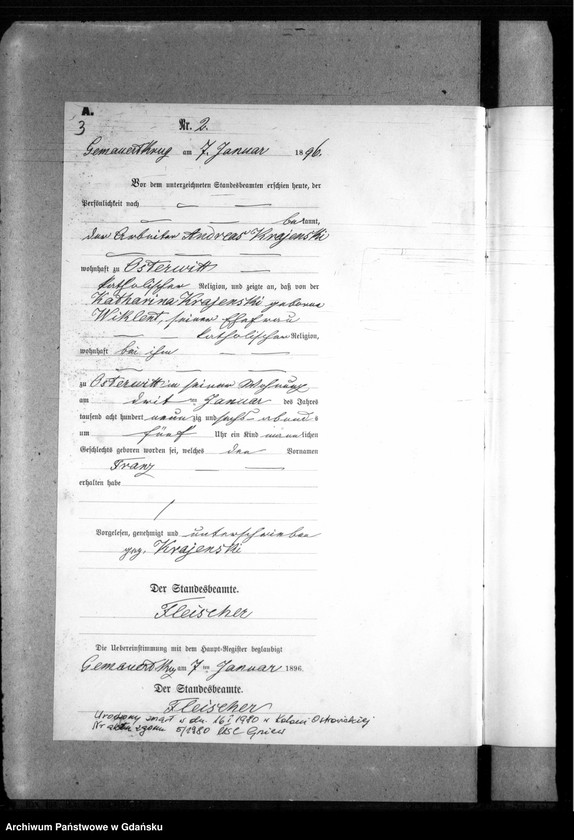 A.
3
Nr. 2.
Gemauertkrug am 7. Januar 1896.
Vor dem unterzeichneten Standesbeamten erschien heute, der
Persönlichkeit nach
bekannt,
der Arbeiter Andreas Krajenski
wohnhaft zu Osterwitt
katholischer Religion, und zeigte an, daß von der
Katharina Krajenski geborne
Wiklent, seiner Ehefrau
katholischer Religion,
wohnhaft bei ihm
zu Osterwitt in seiner Wohnung
am dritten Januar des Jahres
tausend acht hundert neunzig und sechs abends
um fünf Uhr ein Kind männlichen
Geschlechts geboren worden sei, welches den Vornamen
Franz
erhalten habe
Vorgelesen, genehmigt und unterschrieben
gez. Krajenski
Der Standesbeamte.
Fleischer
Die Uebereinstimmung mit dem Haupt-Register beglaubigt
am 7ten Januar 1896.
Der Standesbeamte.
Fleischer
Urodzony zmarł w dn. 16 I 1980 w Kolonii Ostrowickiej
Nr aktu zgonu 5/1980 USC Gniew
Archiwum Państwowe w Gdańsku